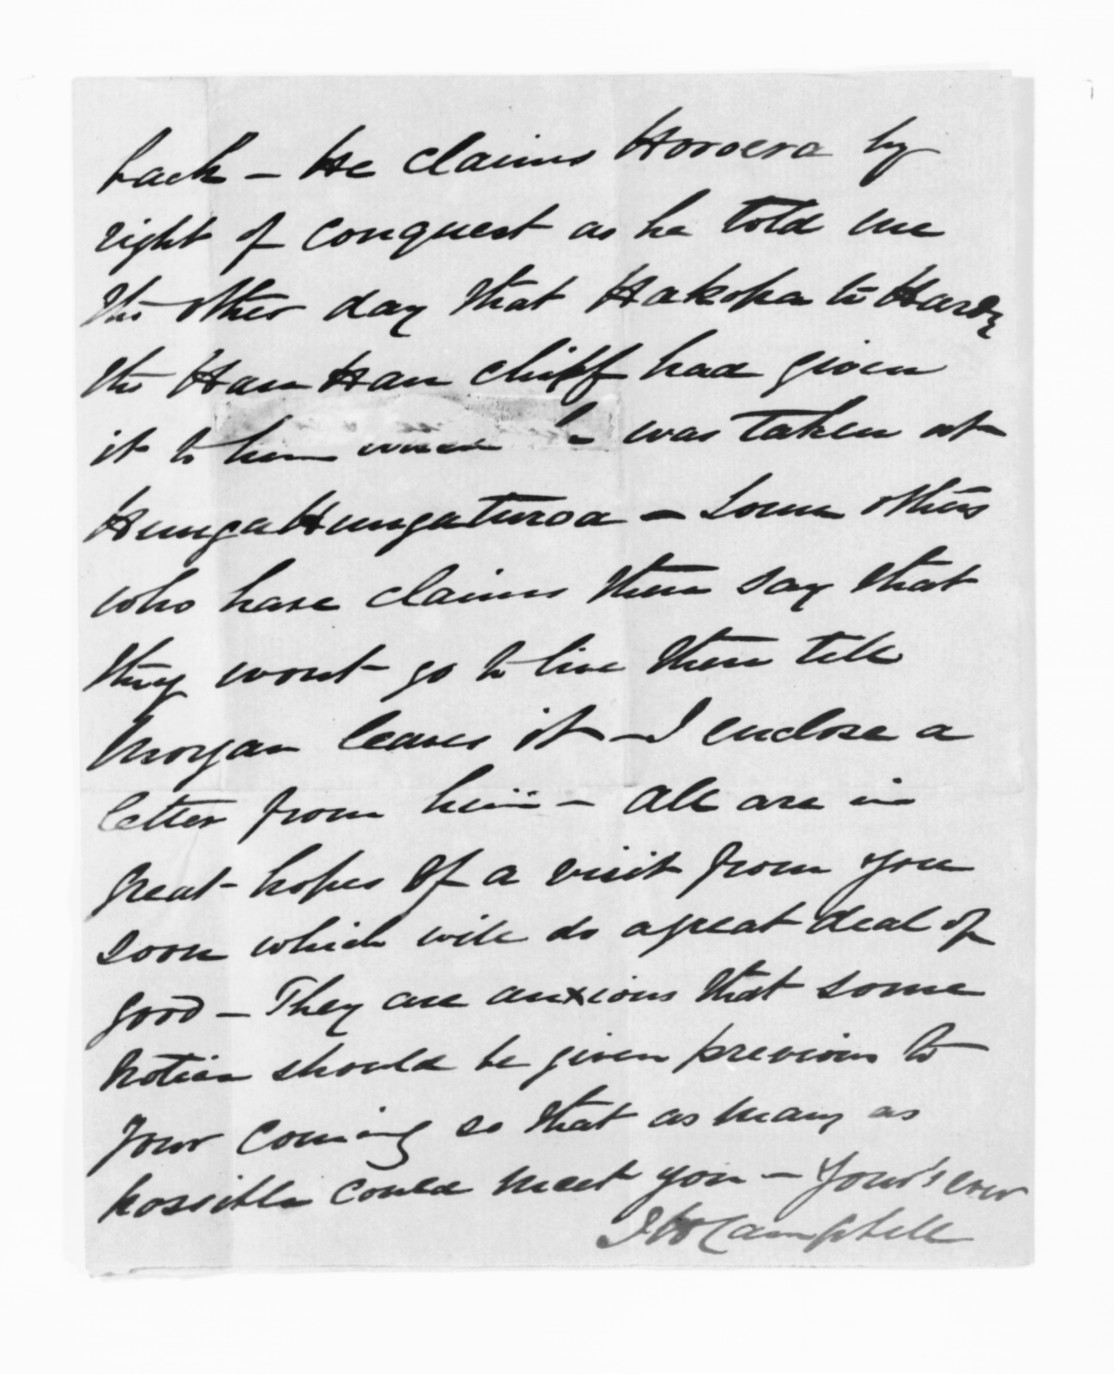 back – He claims Horoera by
right of conquest as he told me
the other day that Hakopa te
the Hau Hau chiff had given
it to him when he was taken at
HungaHungatoroa – Some others
who have claims there say that
they wont go to live there till
Morgan leaves it – I enclose a
letter from him – All are in
great hopes of a visit from you
soon which will do a great deal of
good – They are anxious that some
notice should be given previous to
your coming so that as many as
possible could meet you – Your's ever
Campbell